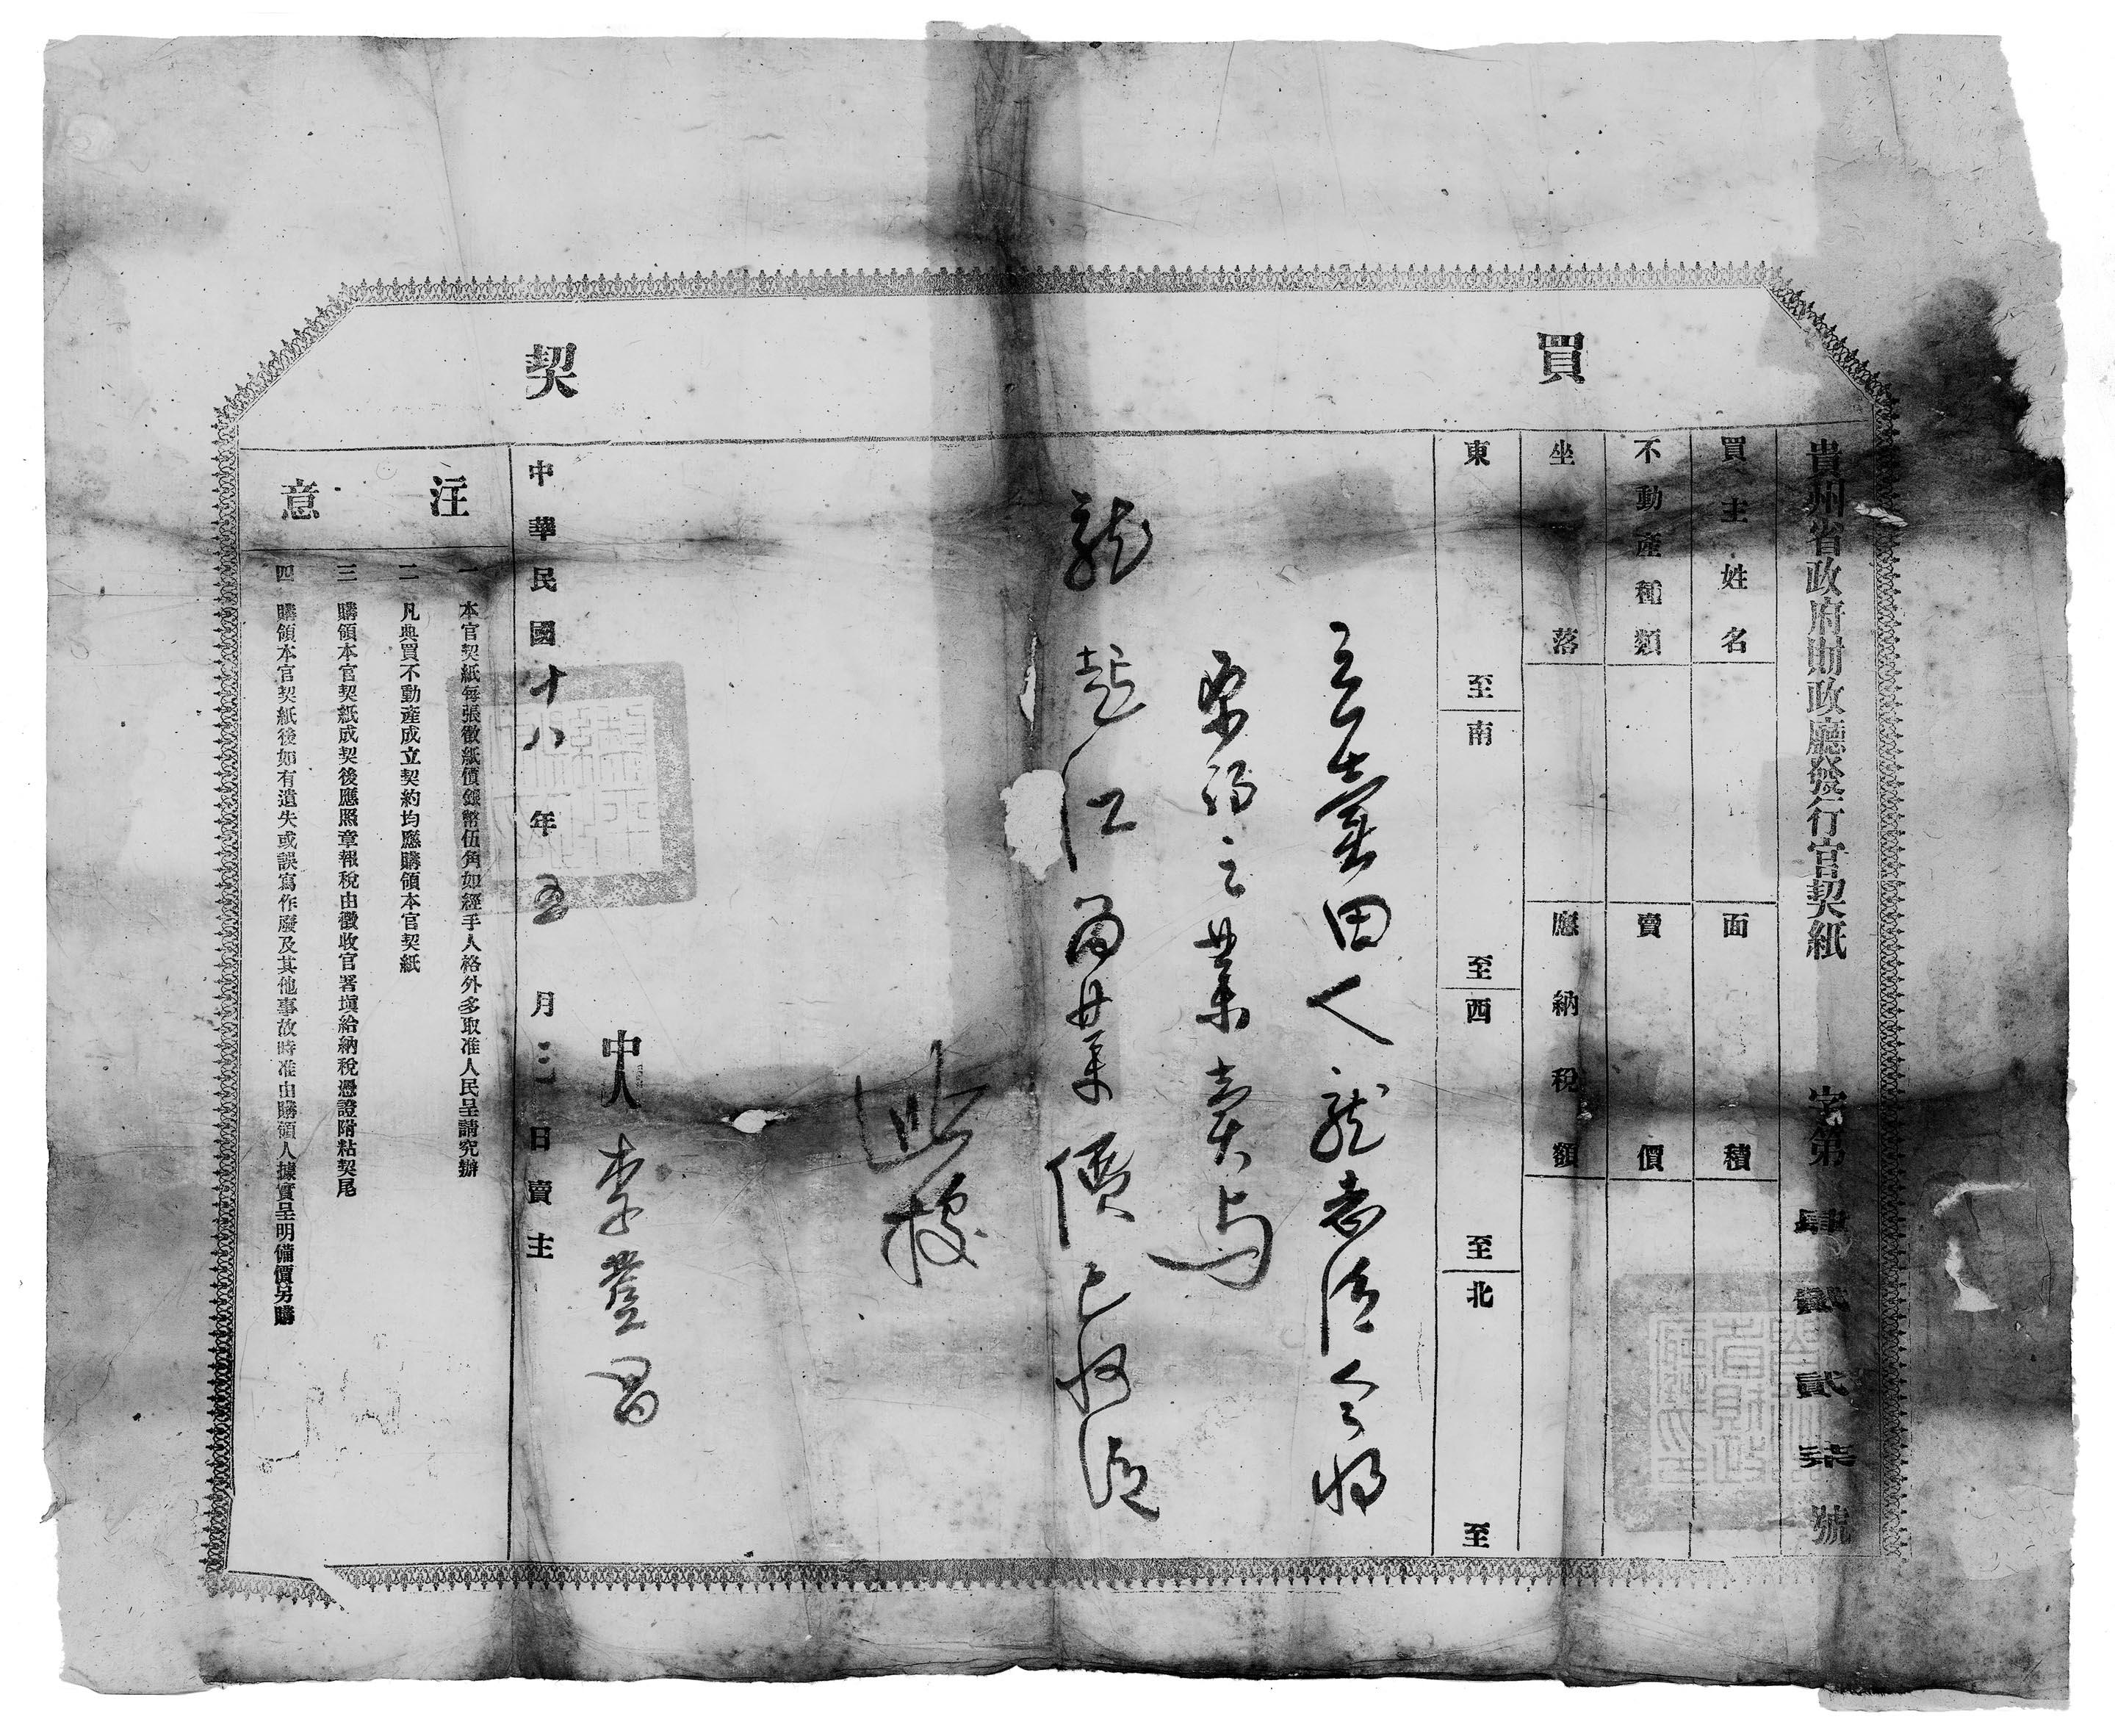 買契
貴州省政府財政廳發行官契紙　字第肆貳貳柒號
買主姓名　面積
不動產種類　賣價
坐落　應納稅額
東至　南至　西至　北至
立賣田人龍老法今將
之業賣与
龍　江為業價已收清
此據
中人李　昌
中華民國十八年五月三日賣主
注意
一　本官契紙每張徵紙價銀幣伍角如經手人格外多取准人民呈請究辦
二　凡典買不動產成立契約均應購領本官契紙
三　購領本官契紙成契後應照章報稅由徵收官署塡給納稅憑證附粘契尾
四　購領本官契紙後如有遺失或誤寫作廢及其他事故時准由購領人據實呈明備價另購